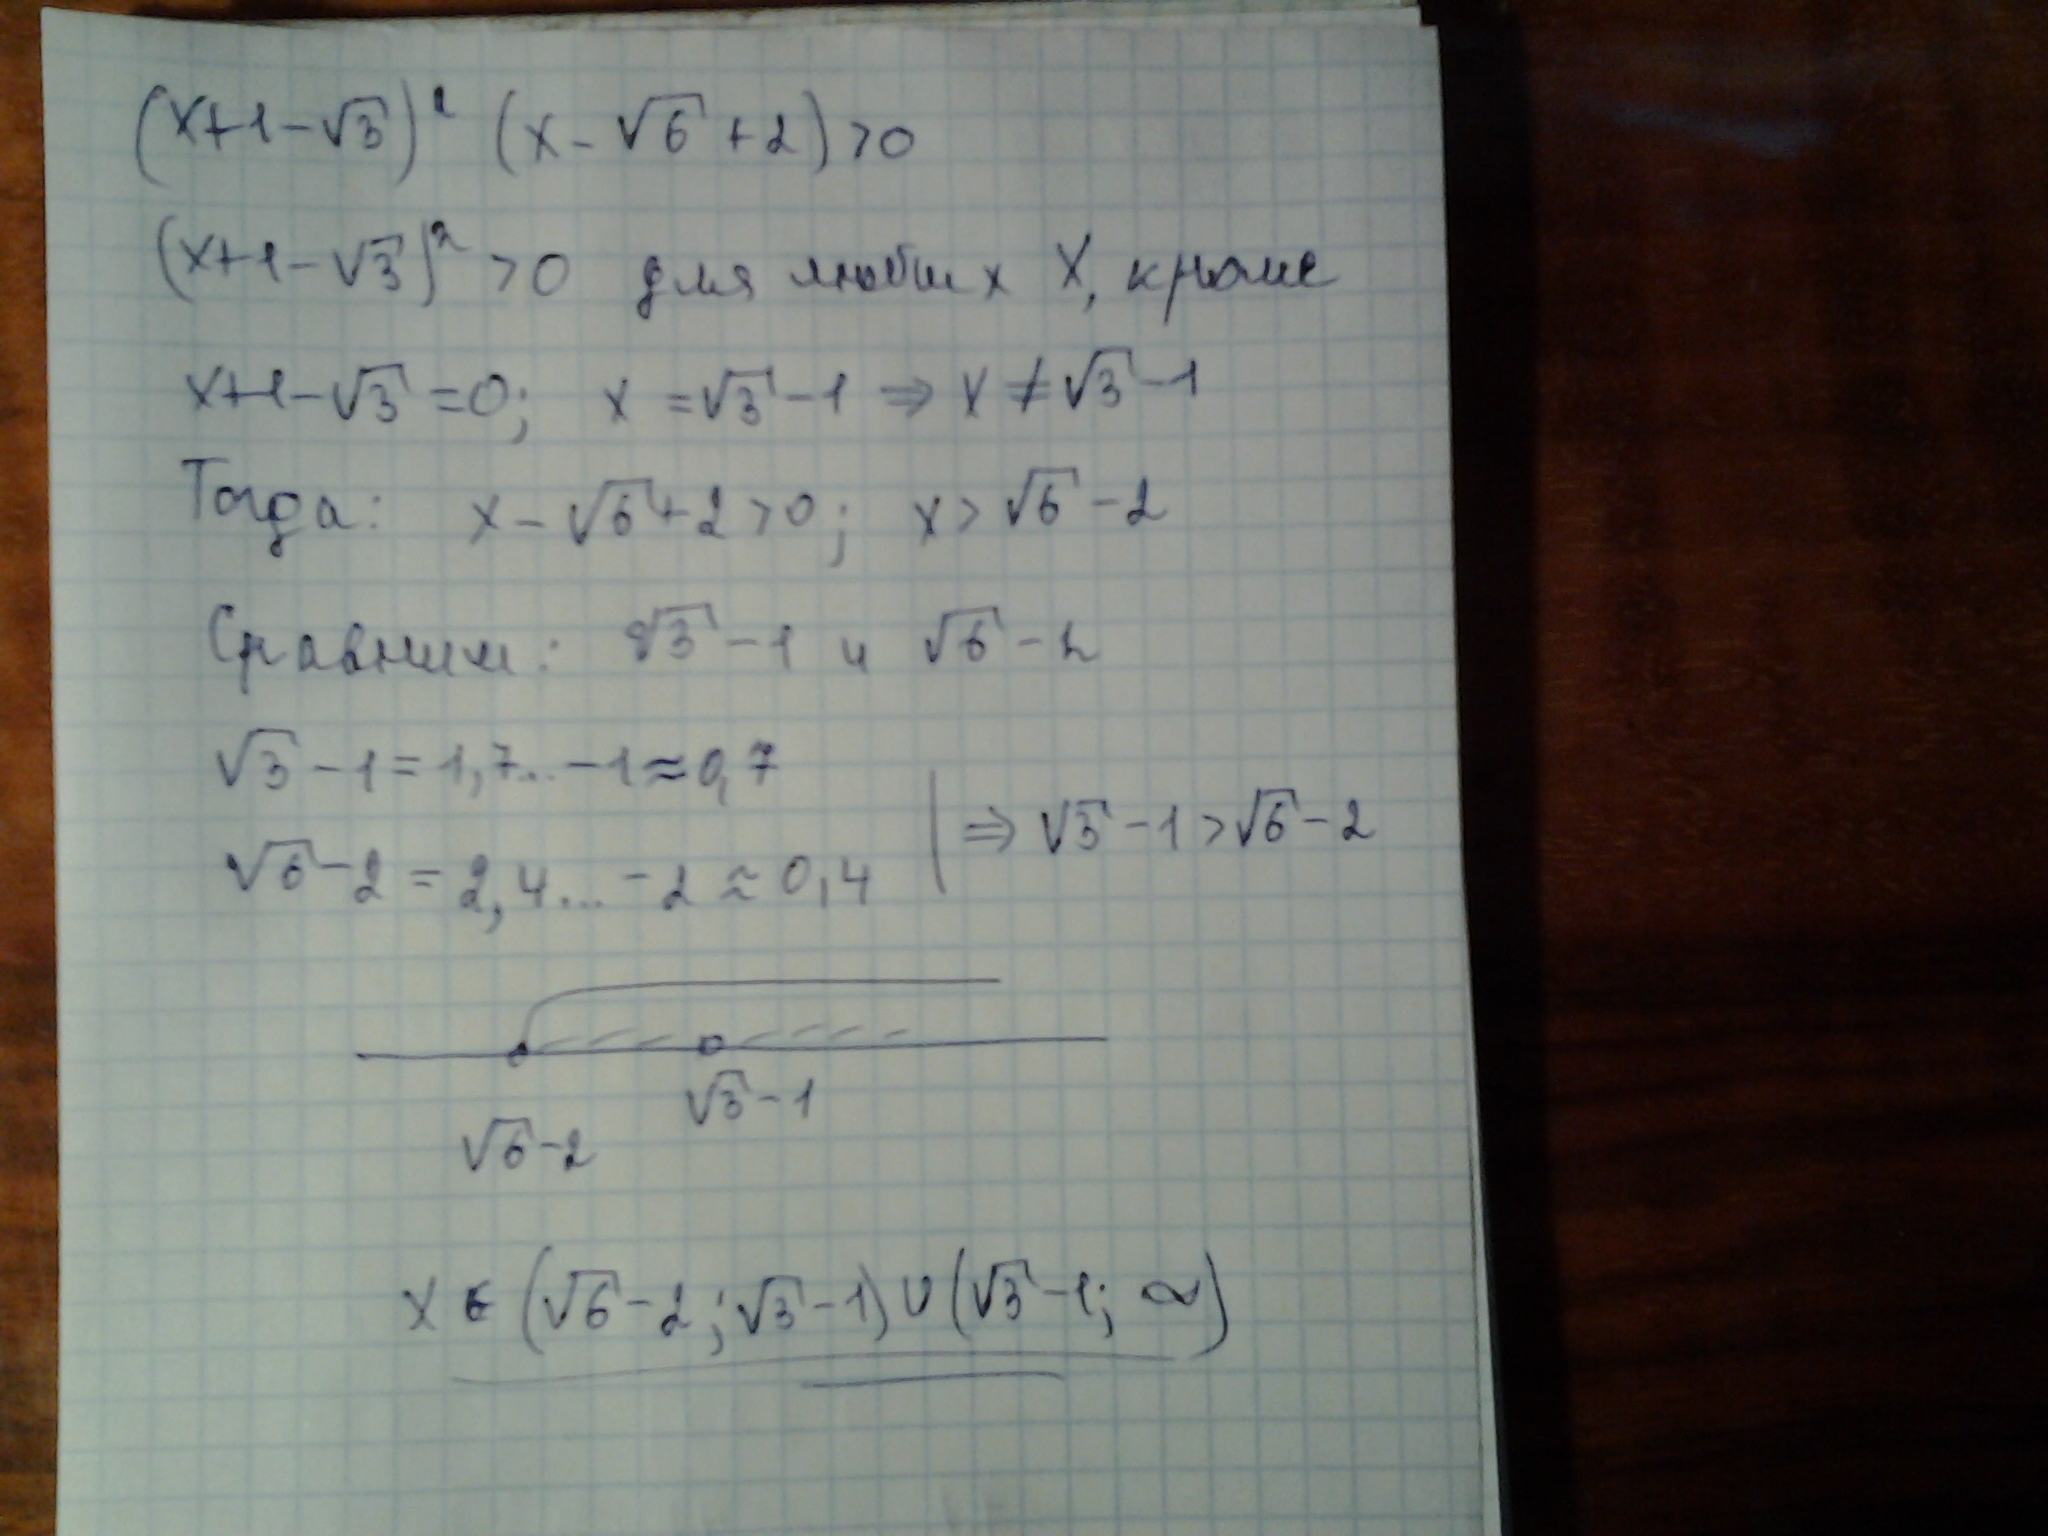 (x+1-√3)² (x-√6+2)>0
(x+1-√3)²>0 для любых X, кроме
x+1-√3=0; x=√3-1 ⇒ x≠√3-1
Тогда: x-√6+2>0; x>√6-2
Сравним: √3-1 и √6-2
√3-1=1,7...-1≈0,7
√6-2=2,4...-2≈0,4 | ⇒ √3-1>√6-2
√3-1
√6-2
X ∈ (√6-2;√3-1)∪(√3-1; ∞)